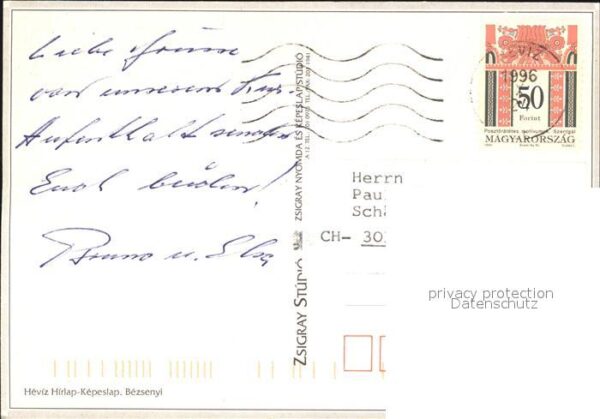 Liebe
von unserem Kur-
Aufenthalt senden
Euch beiden!
Bruno u. Elsa
ZSIGRAY STÚDIÓ
ZSIGRAY NYOMDA ÉS KÉPESLAPSTÚDIÓ
VIZ
1996
50
Forint
MAGYARORSZÁG
Herrn
Paul
Schä
CH- 30
privacy protection
Datenschutz
Hévíz Hírlap-Képeslap. Bézsenyi